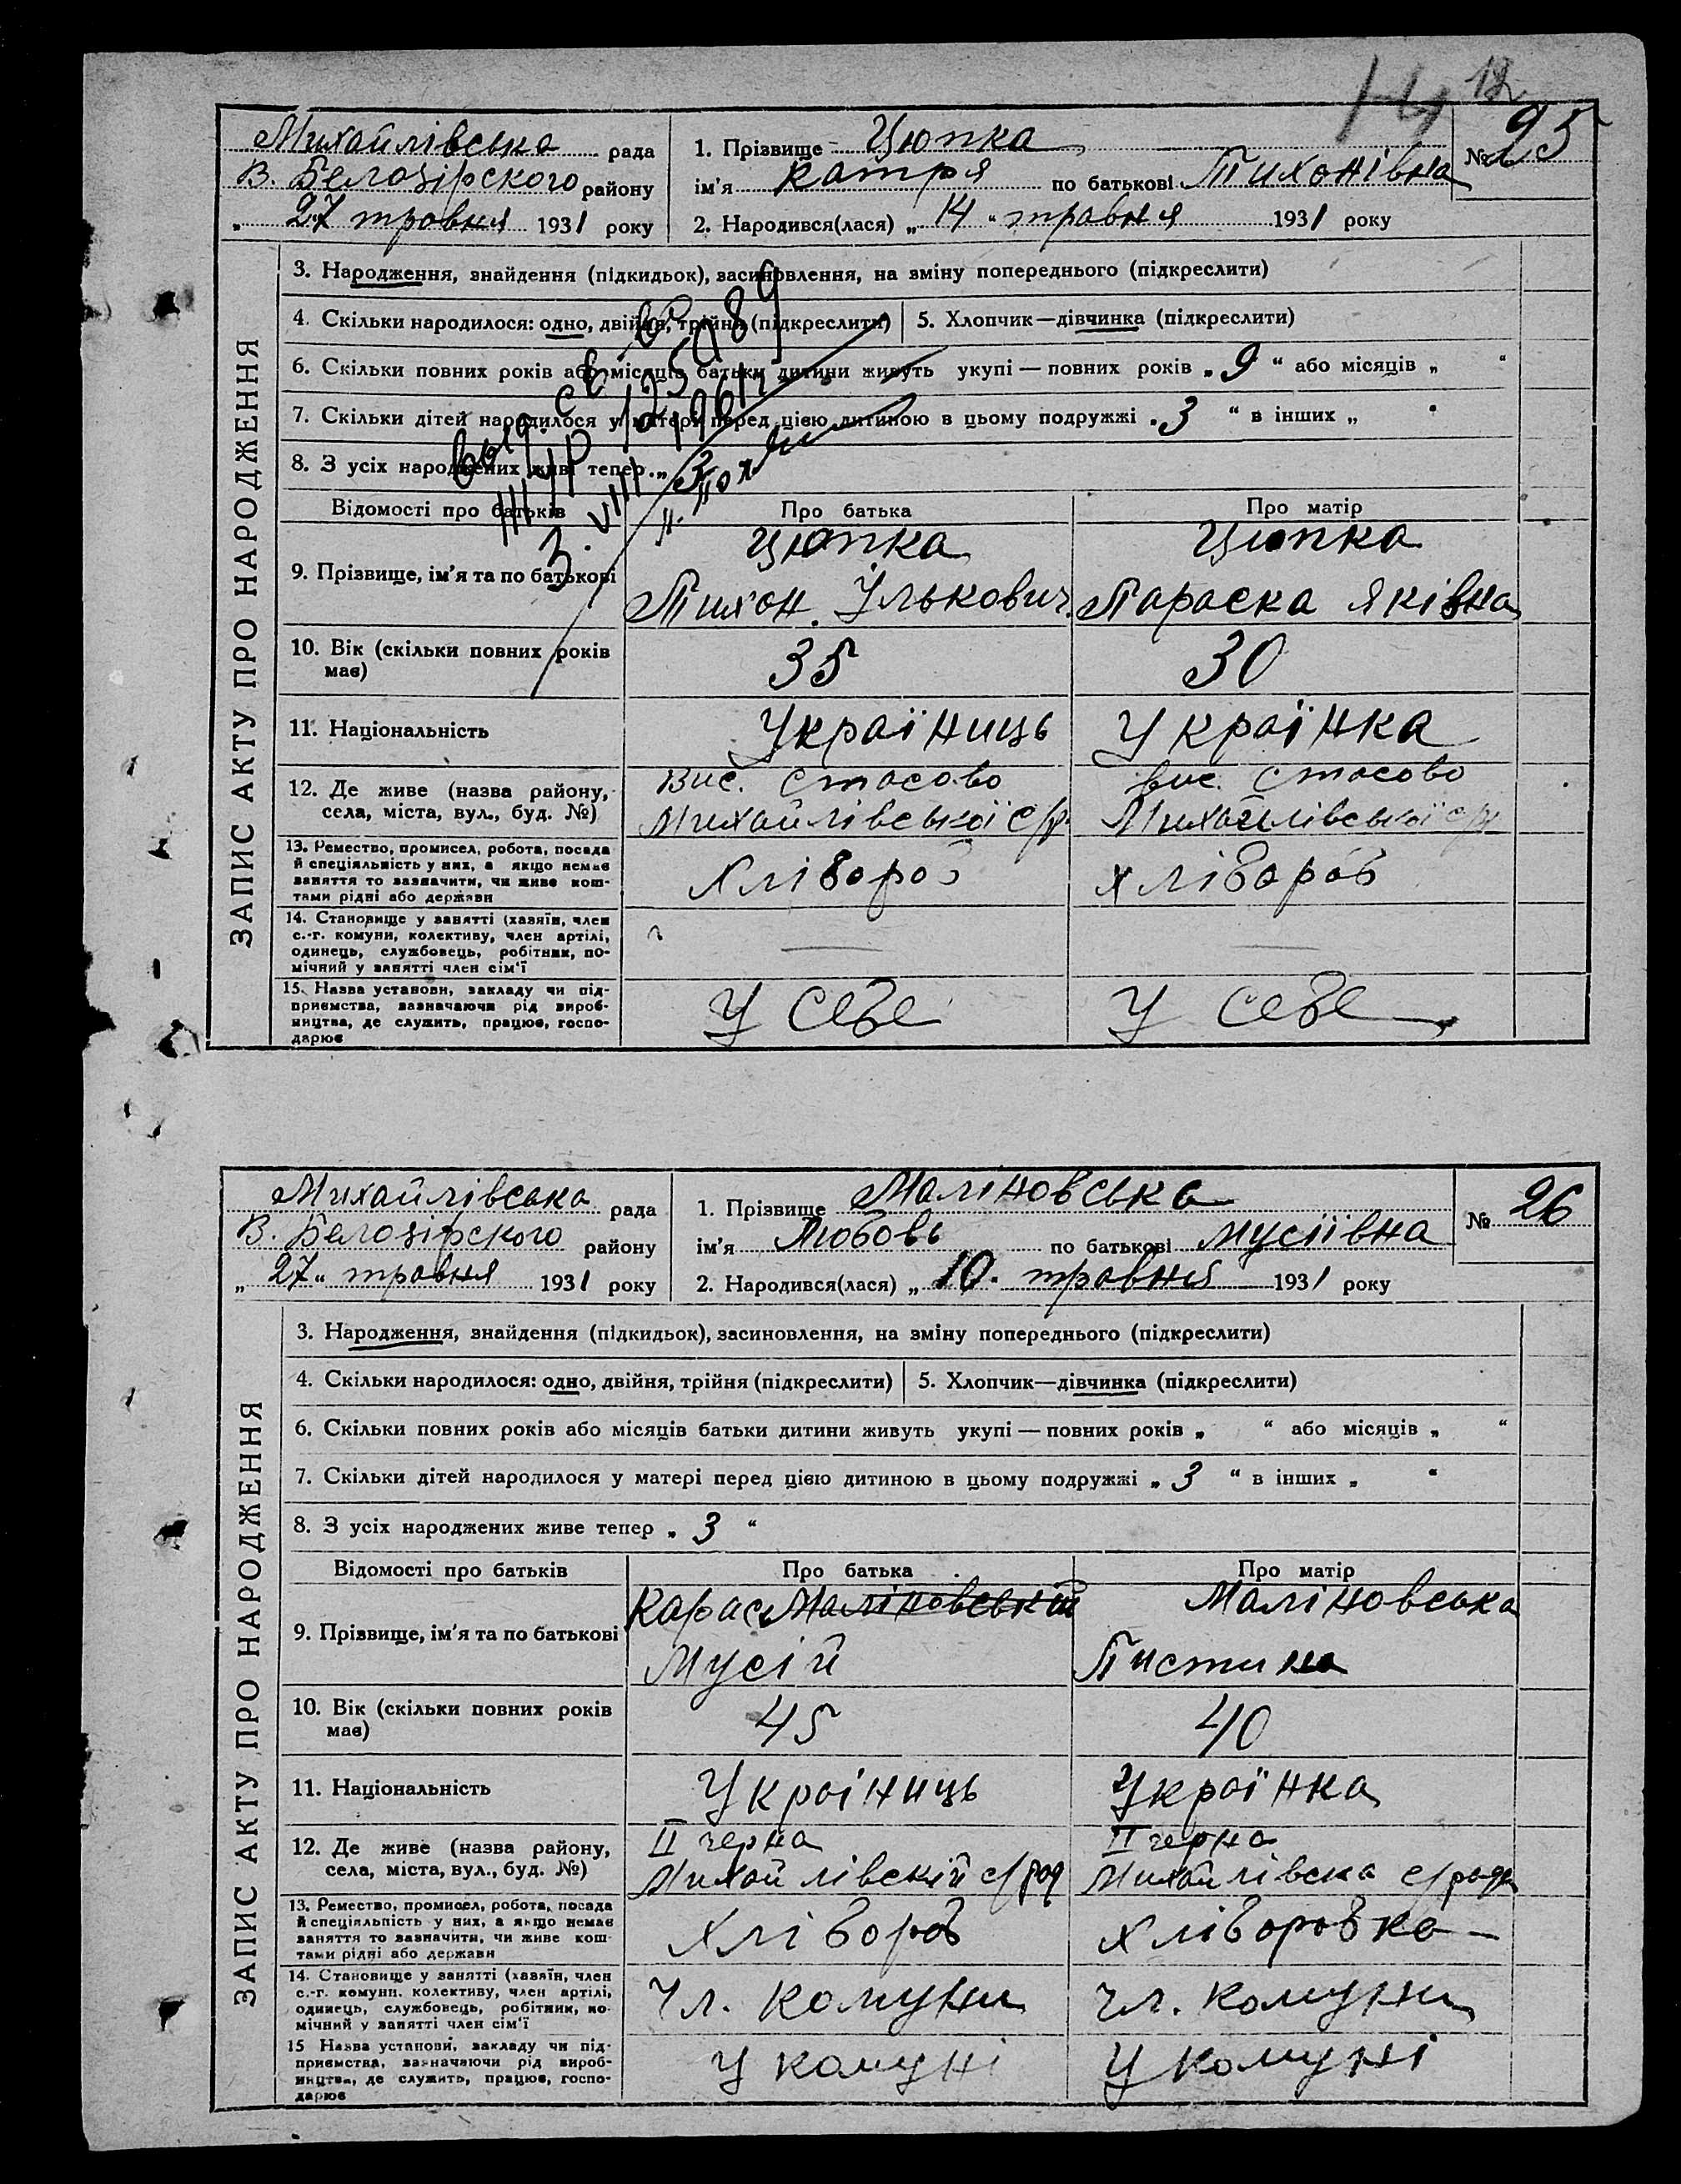 14 12
Михайлівська рада
В. Белозірского району
„ 27 травня 1931 року
1. Прізвище Цюпка
ім'я Катря по батькові Тихонівна
2. Народився(лася) „ 14 “ травня 1931 року
№ 25
ЗАПИС АКТУ ПРО НАРОДЖЕННЯ
3. Народження, знайдення (підкидьок), засиновлення, на зміну попереднього (підкреслити)
4. Скільки народилося: одно, двійня, трійня (підкреслити) 5. Хлопчик—дівчинка (підкреслити)
6. Скільки повних років або місяців батьки дитини живуть укупі — повних років „ 9 “ або місяців „ “
7. Скільки дітей народилося у матері перед цією дитиною в цьому подружжі „ 3 “ в інших „ “
8. З усіх народжених живе тепер „ 3
Відомості про батьків Про батька Про матір
9. Прізвище, ім'я та по батькові
Цюпка
Тихон Ількович
Цюпка
Параска Яківна
10. Вік (скільки повних років
має)
35 30
11. Національність Україниць Українка
12. Де живе (назва району,
села, міста, вул., буд. №)
Вис. Стасово
Михайлівської с/р
вис. Стасово
Михайлівської с/р
13. Ремество, промисел, робота, посада
й спеціяльність у них, а якщо немає
заняття то зазначити, чи живе кош-
тами рідні або держави
Хлібороб хлібороб
14. Становище у занятті (хазяїн, член
с.-г. комуни, колективу, член артілі,
одинець, службовець, робітник, по-
мічний у занятті член сім'ї
15. Назва установи, закладу чи під-
приємства, зазначаючи рід вироб-
ництва, де служить, працює, госпо-
дарює
У себе У себе
Михайлівська рада
В. Белозірского району
„ 27 “ травня 1931 року
1. Прізвище Маліновська
ім'я Любовь по батькові Мусіівна
2. Народився(лася) „ 10. травня 1931 року
№ 26
ЗАПИС АКТУ ПРО НАРОДЖЕННЯ
3. Народження, знайдення (підкидьок), засиновлення, на зміну попереднього (підкреслити)
4. Скільки народилося: одно, двійня, трійня (підкреслити) 5. Хлопчик—дівчинка (підкреслити)
6. Скільки повних років або місяців батьки дитини живуть укупі — повних років „ “ або місяців „ “
7. Скільки дітей народилося у матері перед цією дитиною в цьому подружжі „ 3 “ в інших „ “
8. З усіх народжених живе тепер „ 3 “
Відомості про батьків Про батька Про матір
9. Прізвище, ім'я та по батькові
Карас Маліновський
Мусій
Маліновська
Пистина
10. Вік (скільки повних років
має)
45 40
11. Національність Украіниць Українка
12. Де живе (назва району,
села, міста, вул., буд. №)
II черна
Михайлівскій с/рад
II черна
Михайлівска с/рада
13. Ремество, промисел, робота, посада
й спеціяльність у них, а якщо немає
заняття то зазначити, чи живе кош-
тами рідні або держави
Хлібороб хліборобка
14. Становище у занятті (хазяїн, член
с.-г. комуни, колективу, член артілі,
одинець, службовець, робітник, по-
мічний у занятті член сім'ї
Чл. комуни чл. комуни
15 Назва установи, закладу чи під-
приємства, зазначаючи рід вироб-
ництва, де служить, працює, госпо-
дарює
У комуні У комуні